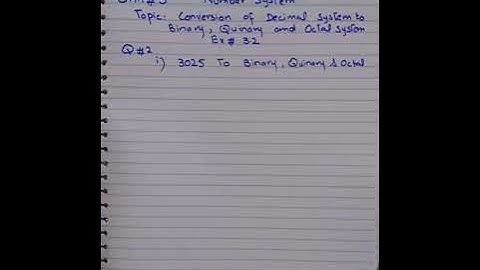 Number System
Topic: Conversion of Decimal System to
Binary, Quinary and Octal System
Ex# 3.2
Q#2
i) 3025 To Binary, Quinary & Octal